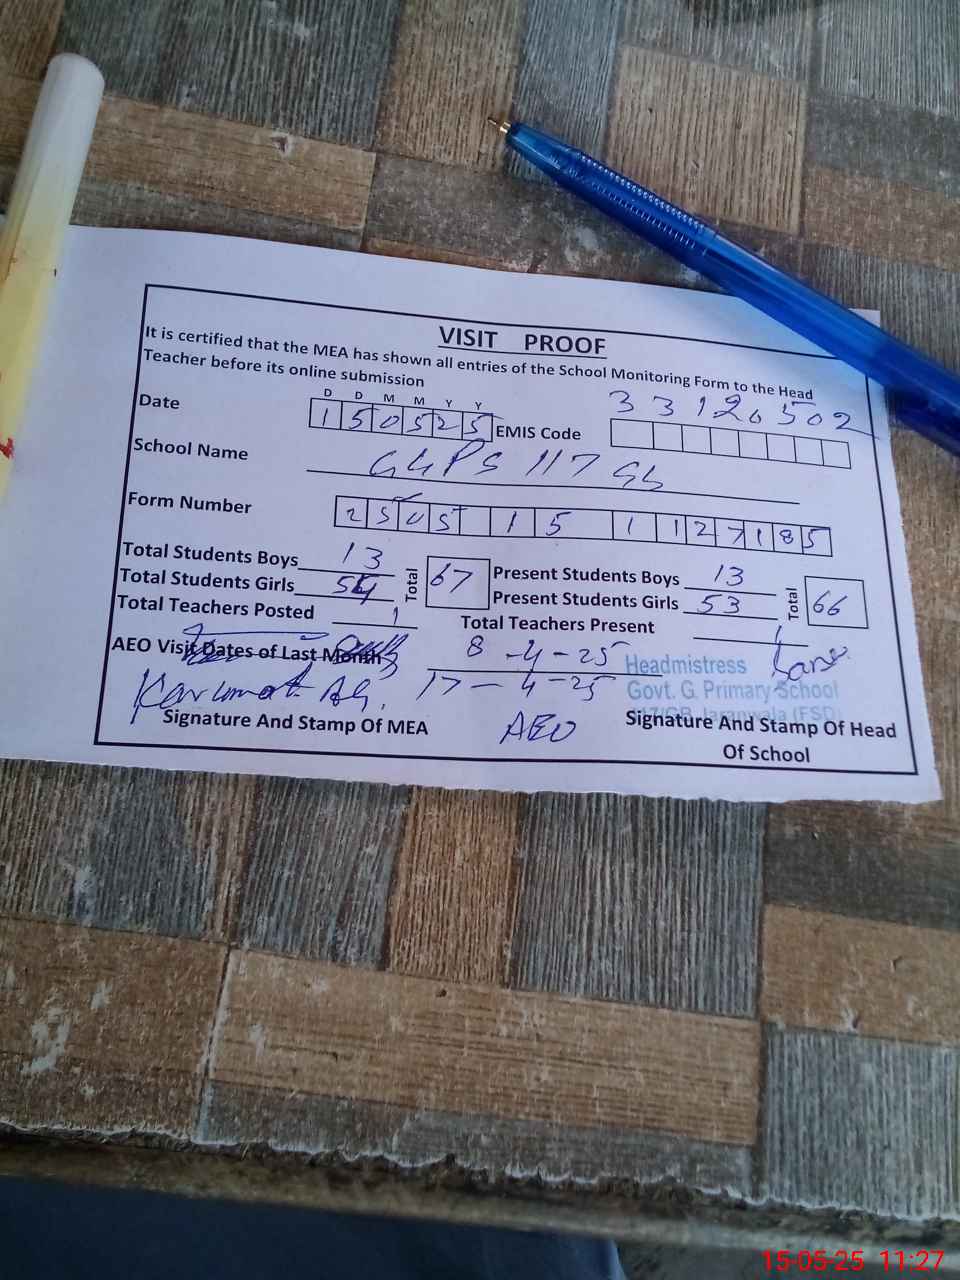 VISIT PROOF
It is certified that the MEA has shown all entries of the School Monitoring Form to the Head
Teacher before its online submission
D D M M Y Y
Date 150525 EMIS Code 33120502
School Name GGPS 117 GB
Form Number 2505 15 1 127185
Total Students Boys 13 Total 67 Present Students Boys 13 Total 66
Total Students Girls 54 Present Students Girls 53
Total Teachers Posted 1 Total Teachers Present 1
AEO Visit Dates of Last Month 8-4-25
17-4-25
Headmistress
Govt. G. Primary School
117/GB Jaranwala (FSD)
Signature And Stamp Of MEA AEO Signature And Stamp Of Head
Of School
15-05-25 11:27